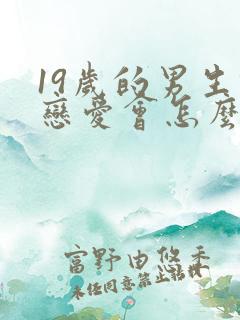 19歲的男生
戀愛會怎麼
富野由悠季
未任同意禁止轉載